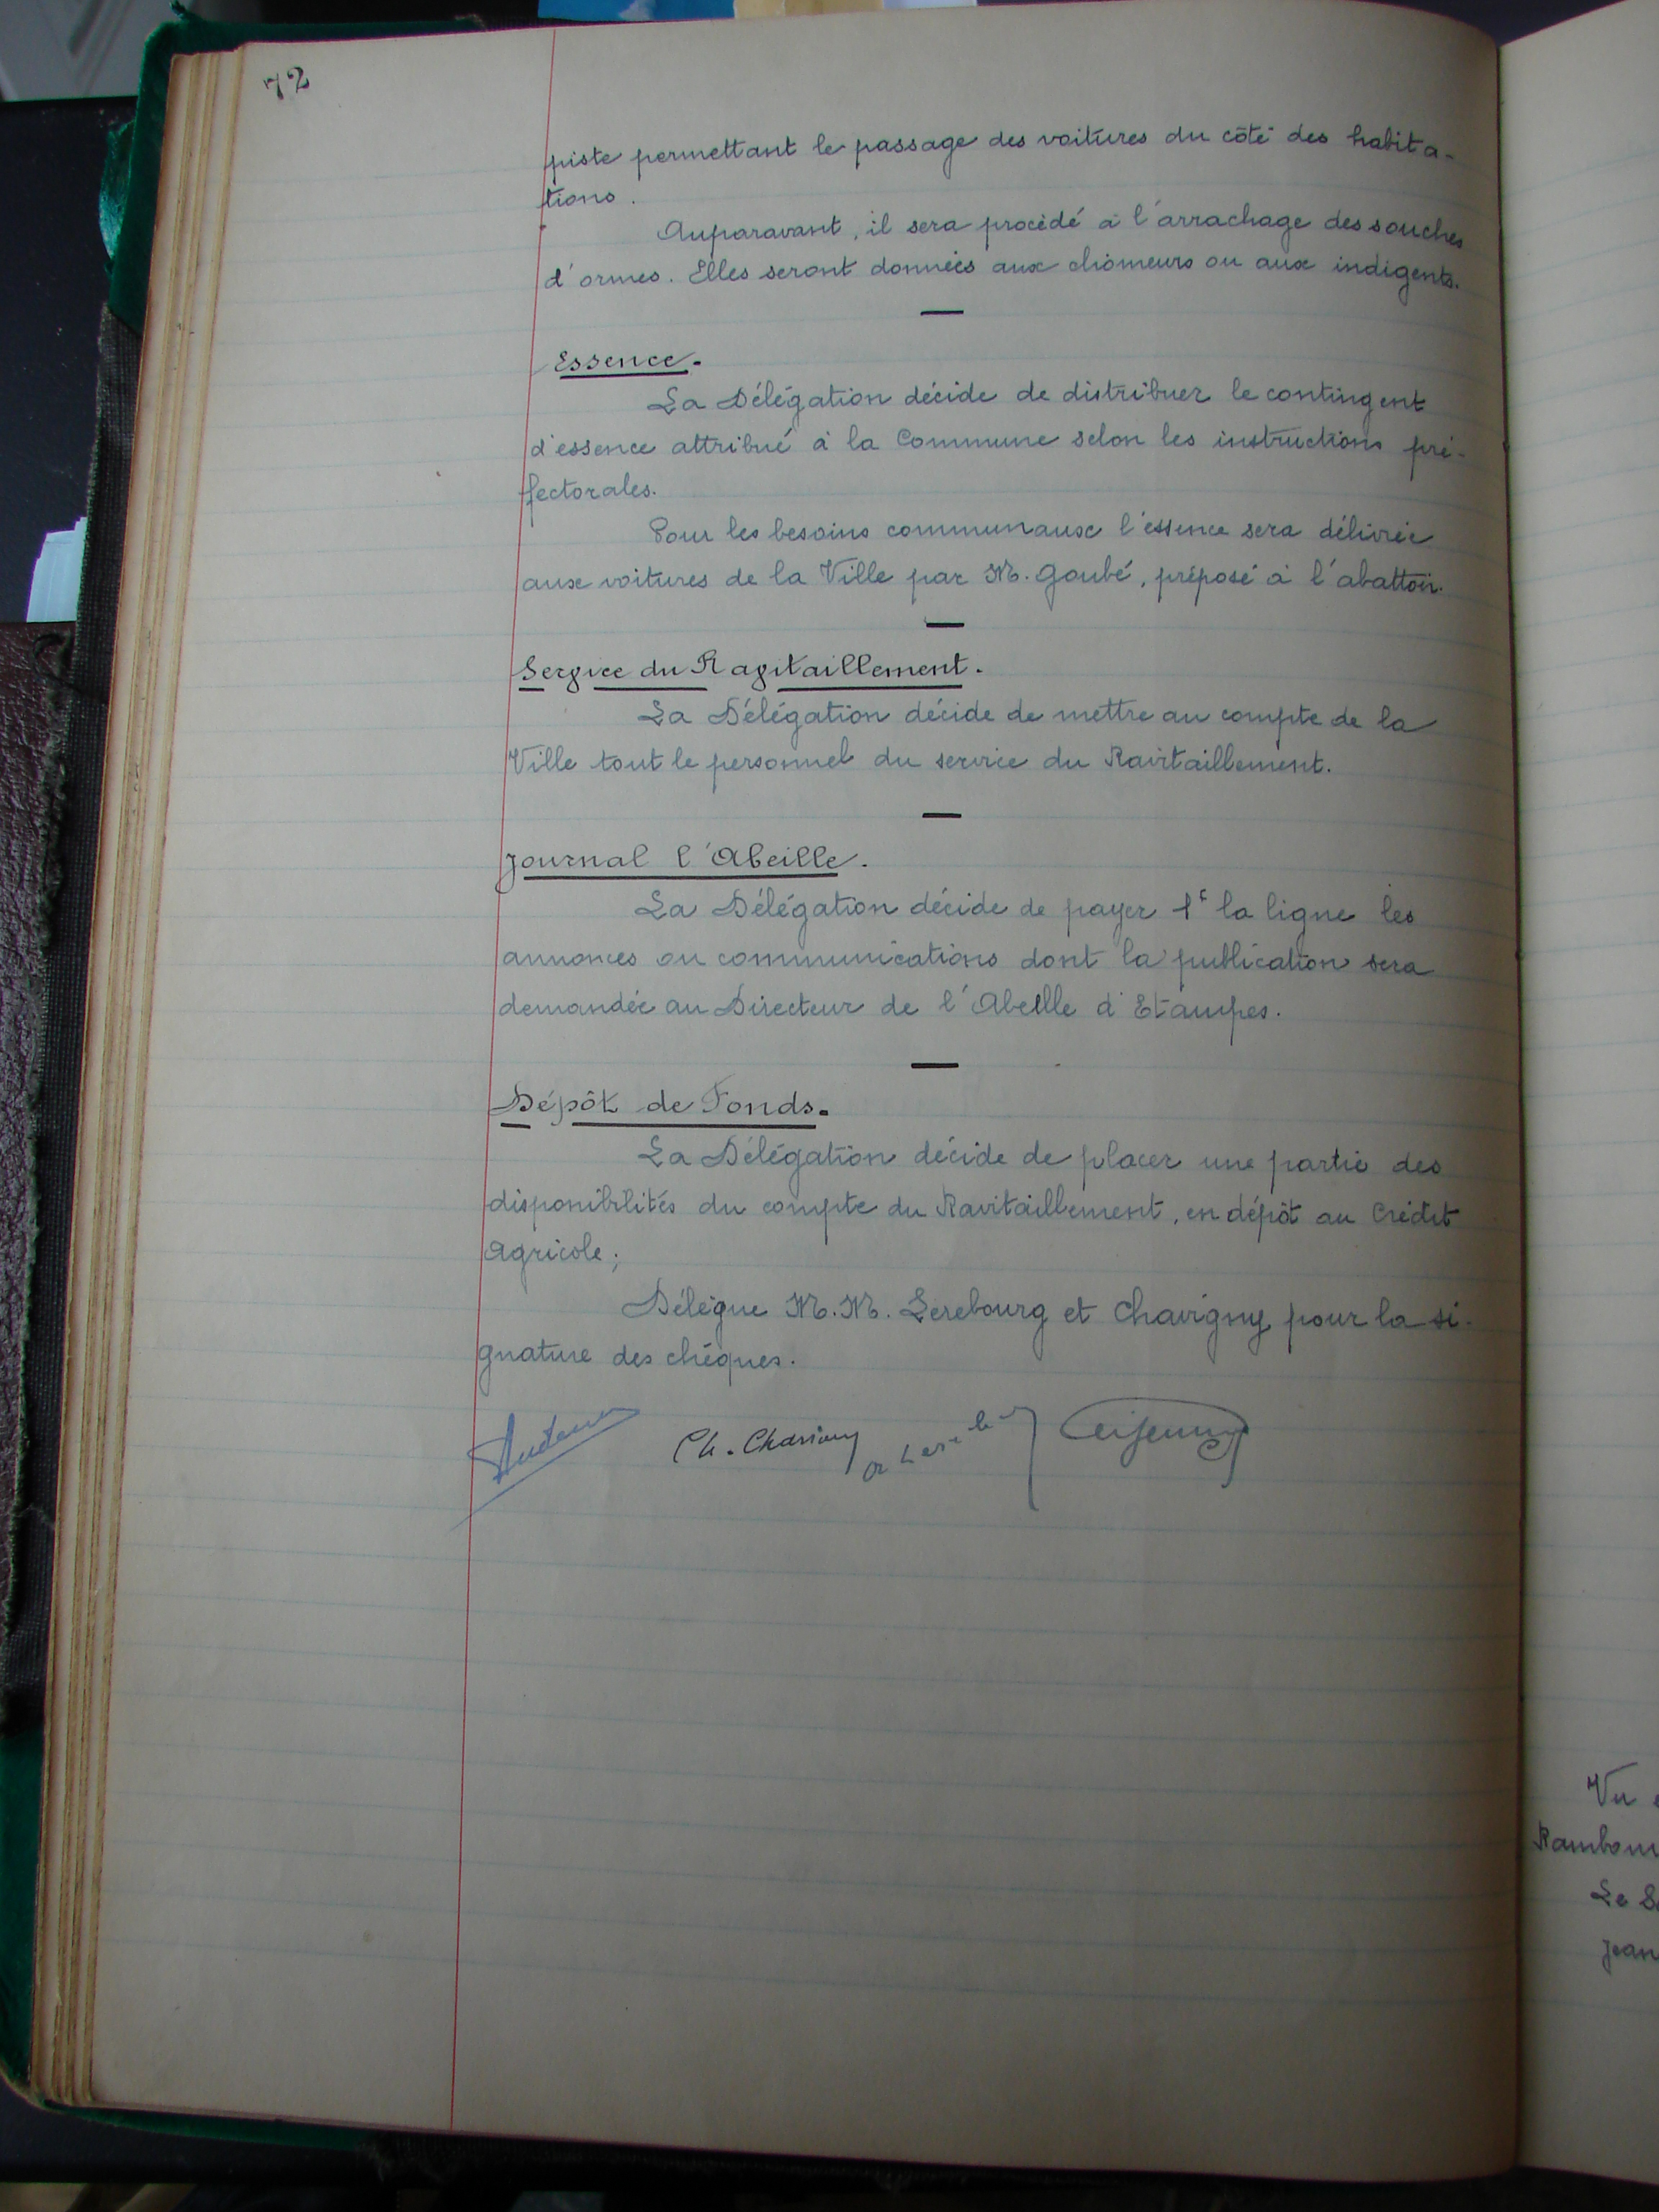 72
piste permettant le passage des voitures du côté des habita-
tions.
Auparavant, il sera procédé à l'arrachage des souches
d'ormes. Elles seront données aux chômeurs ou aux indigents.
Essence.
La Délégation décide de distribuer le contingent
d'essence attribué à la Commune selon les instructions pré-
fectorales.
Pour les besoins communaux l'essence sera délivrée
aux voitures de la Ville par M. Goubé, préposé à l'abattoir.
Service du Ravitaillement.
La Délégation décide de mettre au compte de la
Ville tout le personnel du service du Ravitaillement.
Journal l'Abeille.
La Délégation décide de payer 1f la ligne les
annonces ou communications dont la publication sera
demandée au Directeur de l'Abeille d'Etampes.
Dépôt de Fonds.
La Délégation décide de placer une partie des
disponibilités du compte du Ravitaillement, en dépôt au Crédit
Agricole;
Délègue M.M. Lerebourg et Chavigny pour la si-
gnature des chèques.
Ch. Chavigny
Vu
Le
Jean